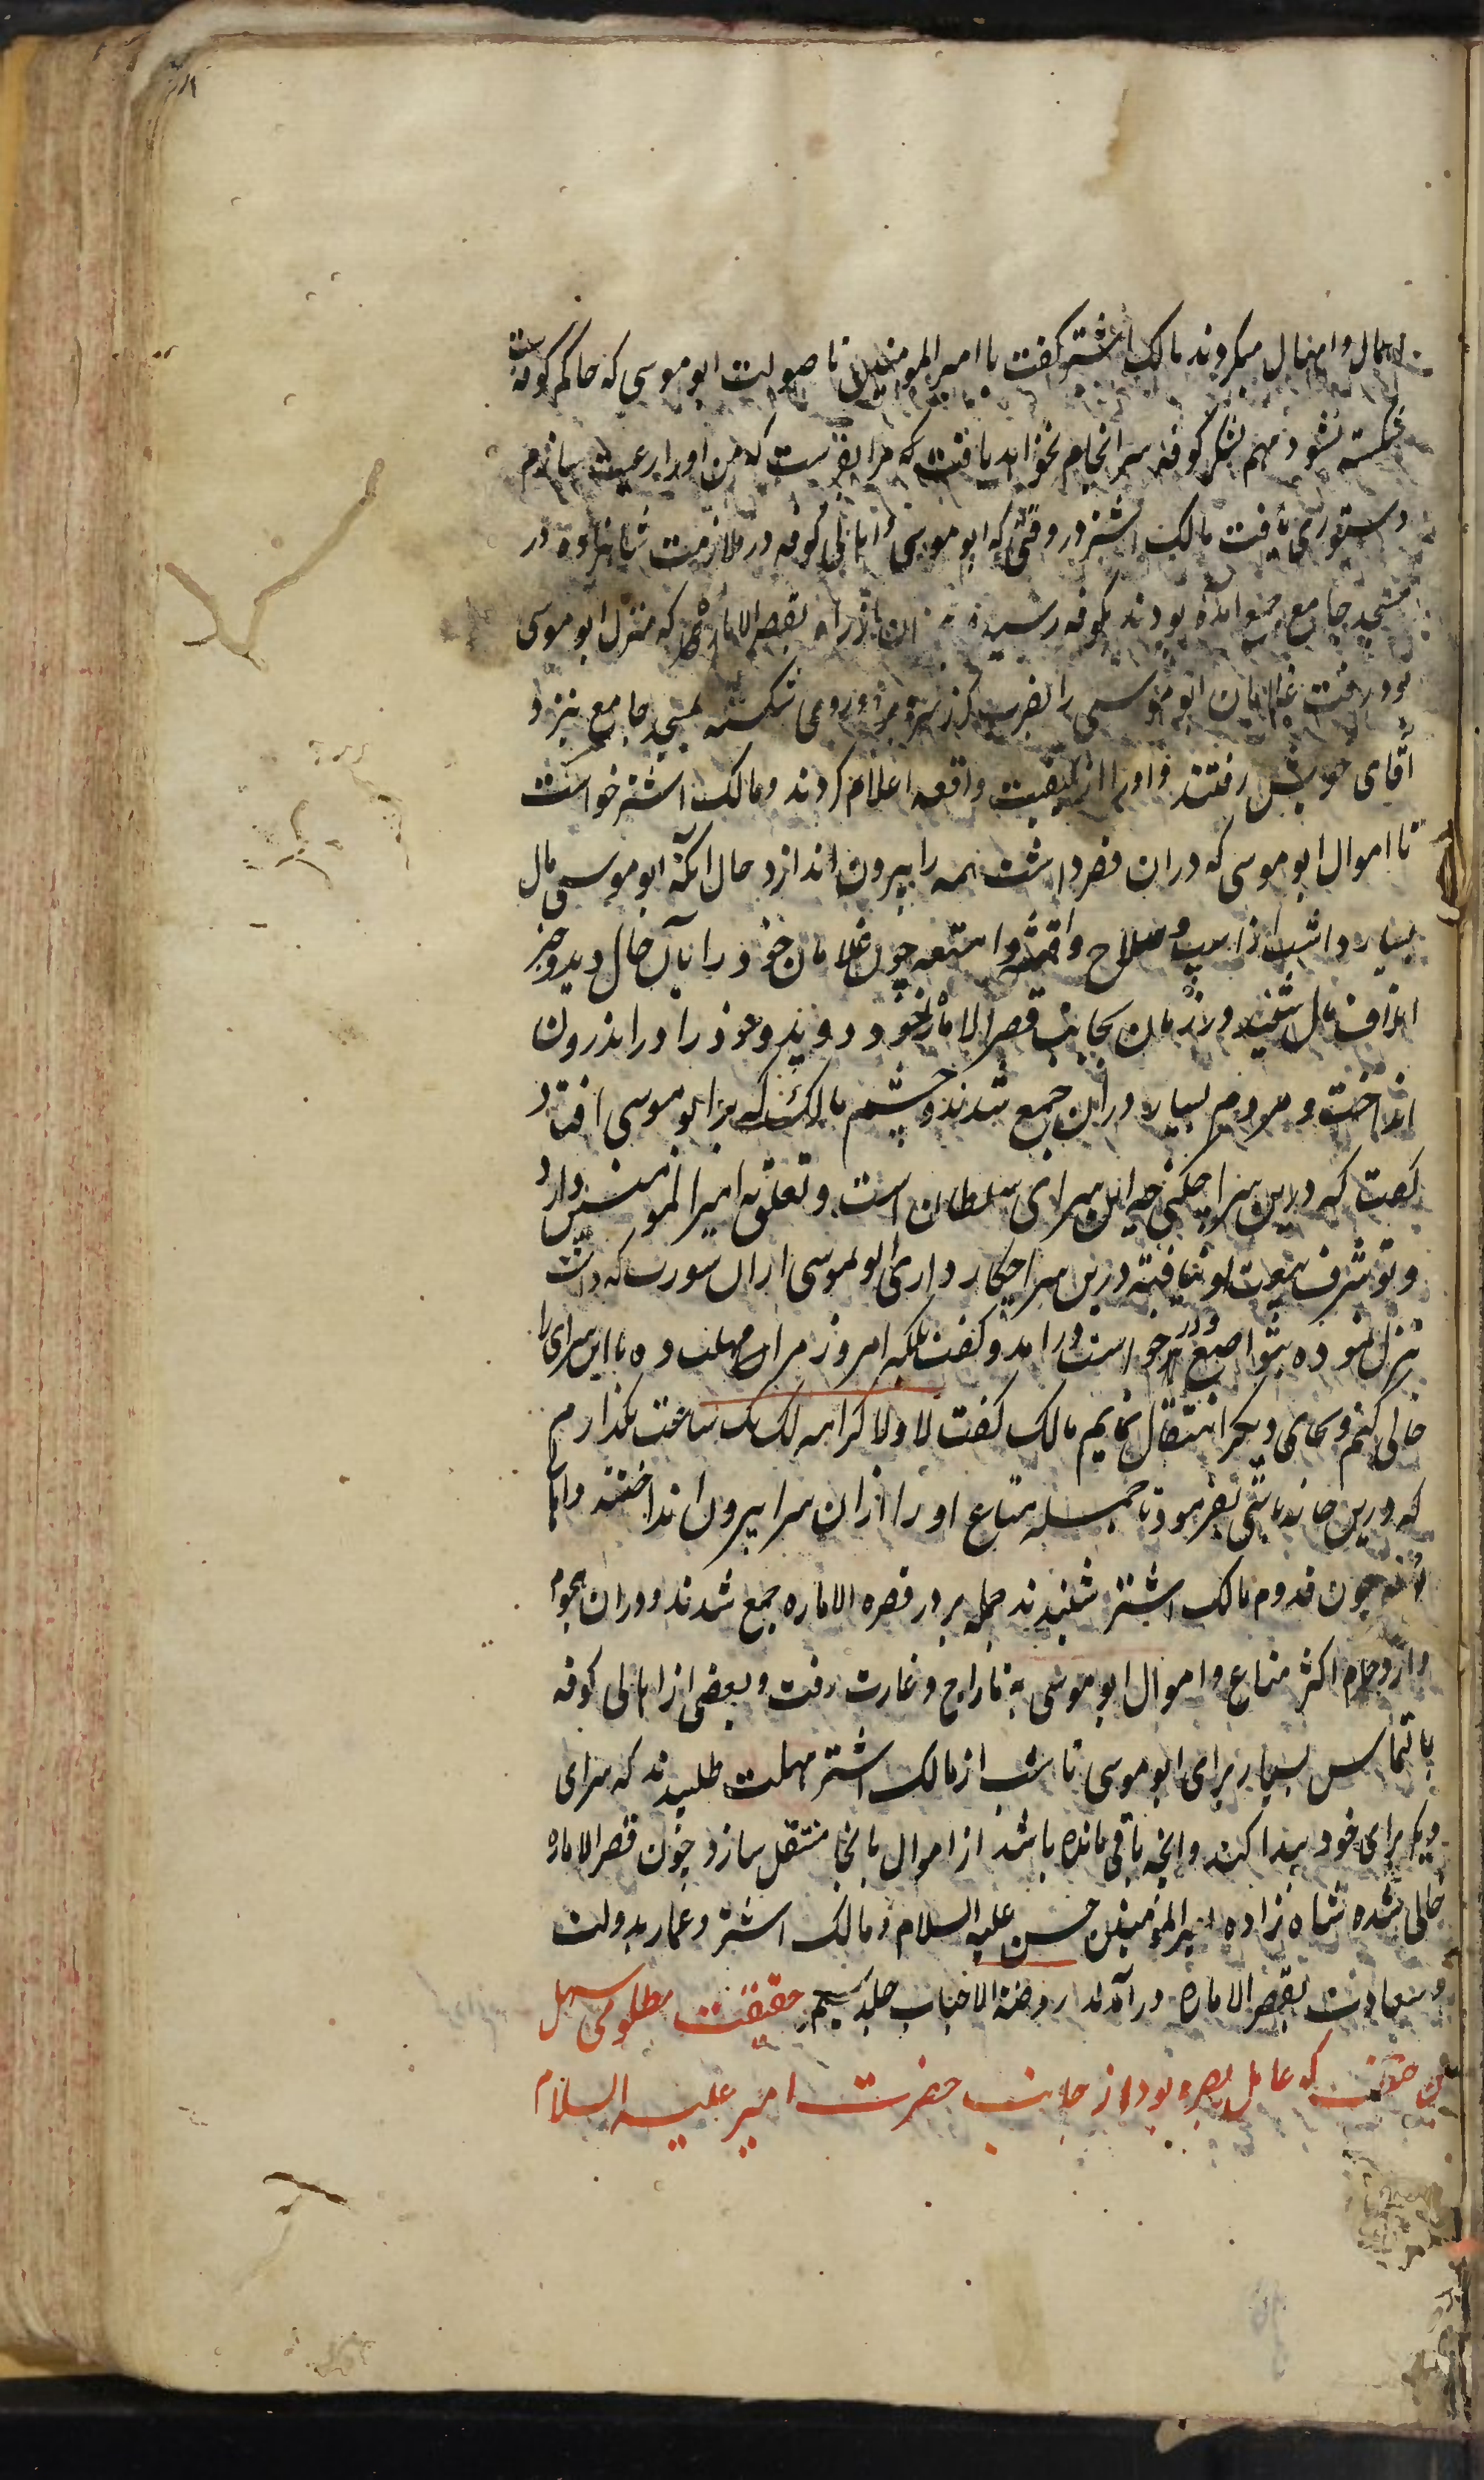 اهمال و امهال میکردند مالک اشتر کفت یا امیر المومنین تا صولت ابو موسی که حاکم کوفه است
شکسته نشود مهم لشکر کوفه سرانجام نخواهد یافت که مرا بفرست که من او را رعیت سازم
دستوری یافت مالک اشتر در وقتی که ابو موسی و اهالی کوفه در ملازمت شاهزاده در
مسجد جامع جمع آمده بودند بکوفه رسید بقصر الاماره که منزل ابو موسی
بود رفت غلامان ابو موسی را بضرب کرز سر و روی شکسته بمسجد جامع نزد
آقای خویش رفتند و او را از کیفیت واقعه اعلام کردند و مالک اشتر خواست
تا اموال ابو موسی که دران قصر داشت همه را بیرون اندازد حال آنکه ابو موسی مال
بسیار داشت از اسب و سلاح و اقمشه و امتعه چون غلامان خود را بآن حال دید و خبر
اتلاف مال شنید در زمان بجانب قصر الاماره خود دوید و خود را در اندرون
انداخت و مردم بسیار دران جمع شدند و چشم مالک که بر ابو موسی افتاد
کفت که درین سرا چکنی چه این سرای سلطان است و تعلق به امیر المومنین دارد
و تو شرف بیعت او نیافته درین سرا چکار داری ابو موسی ازان سورت که داشت
تنزل نموده بتواضع و در خواست درامد و کفت بلکه امروز مرا مهلت ده تا این سرای را
خالی کنم و بجای دیکر انتقال نمایم مالک کفت لا ولا کرامه لک یک ساعت نکذارم
که درین خانه باشی بفرمود تا جمله متاع او را ازان سرا بیرون انداختند و اهالی
کوفه چون قدوم مالک اشتر شنیدند جمله بر در قصره الاماره جمع شدند و دران هجوم
و ازدحام اکثر متاع و اموال ابو موسی به تاراج و غارت رفت و بعضی از اهالی کوفه
بالتماس بسیار برای ابو موسی تا شب از مالک اشتر مهلت طلبیدند که سرای
دیکر برای خود پیدا کند و انچه باقی مانده باشد از اموال بانجا منتقل سازد چون قصر الاماره
خالی شده شاه زاده امیر المؤمنین حسن علیه السلام و مالک اشتر و عمار بدولت
و سعادت بقصر الاماره درآمدند روضة الاحباب جلد سیم حقیقت مظلومی سهل
بن حنیف که عامل بصره بود از جانب حضرت امیر علیه السلام